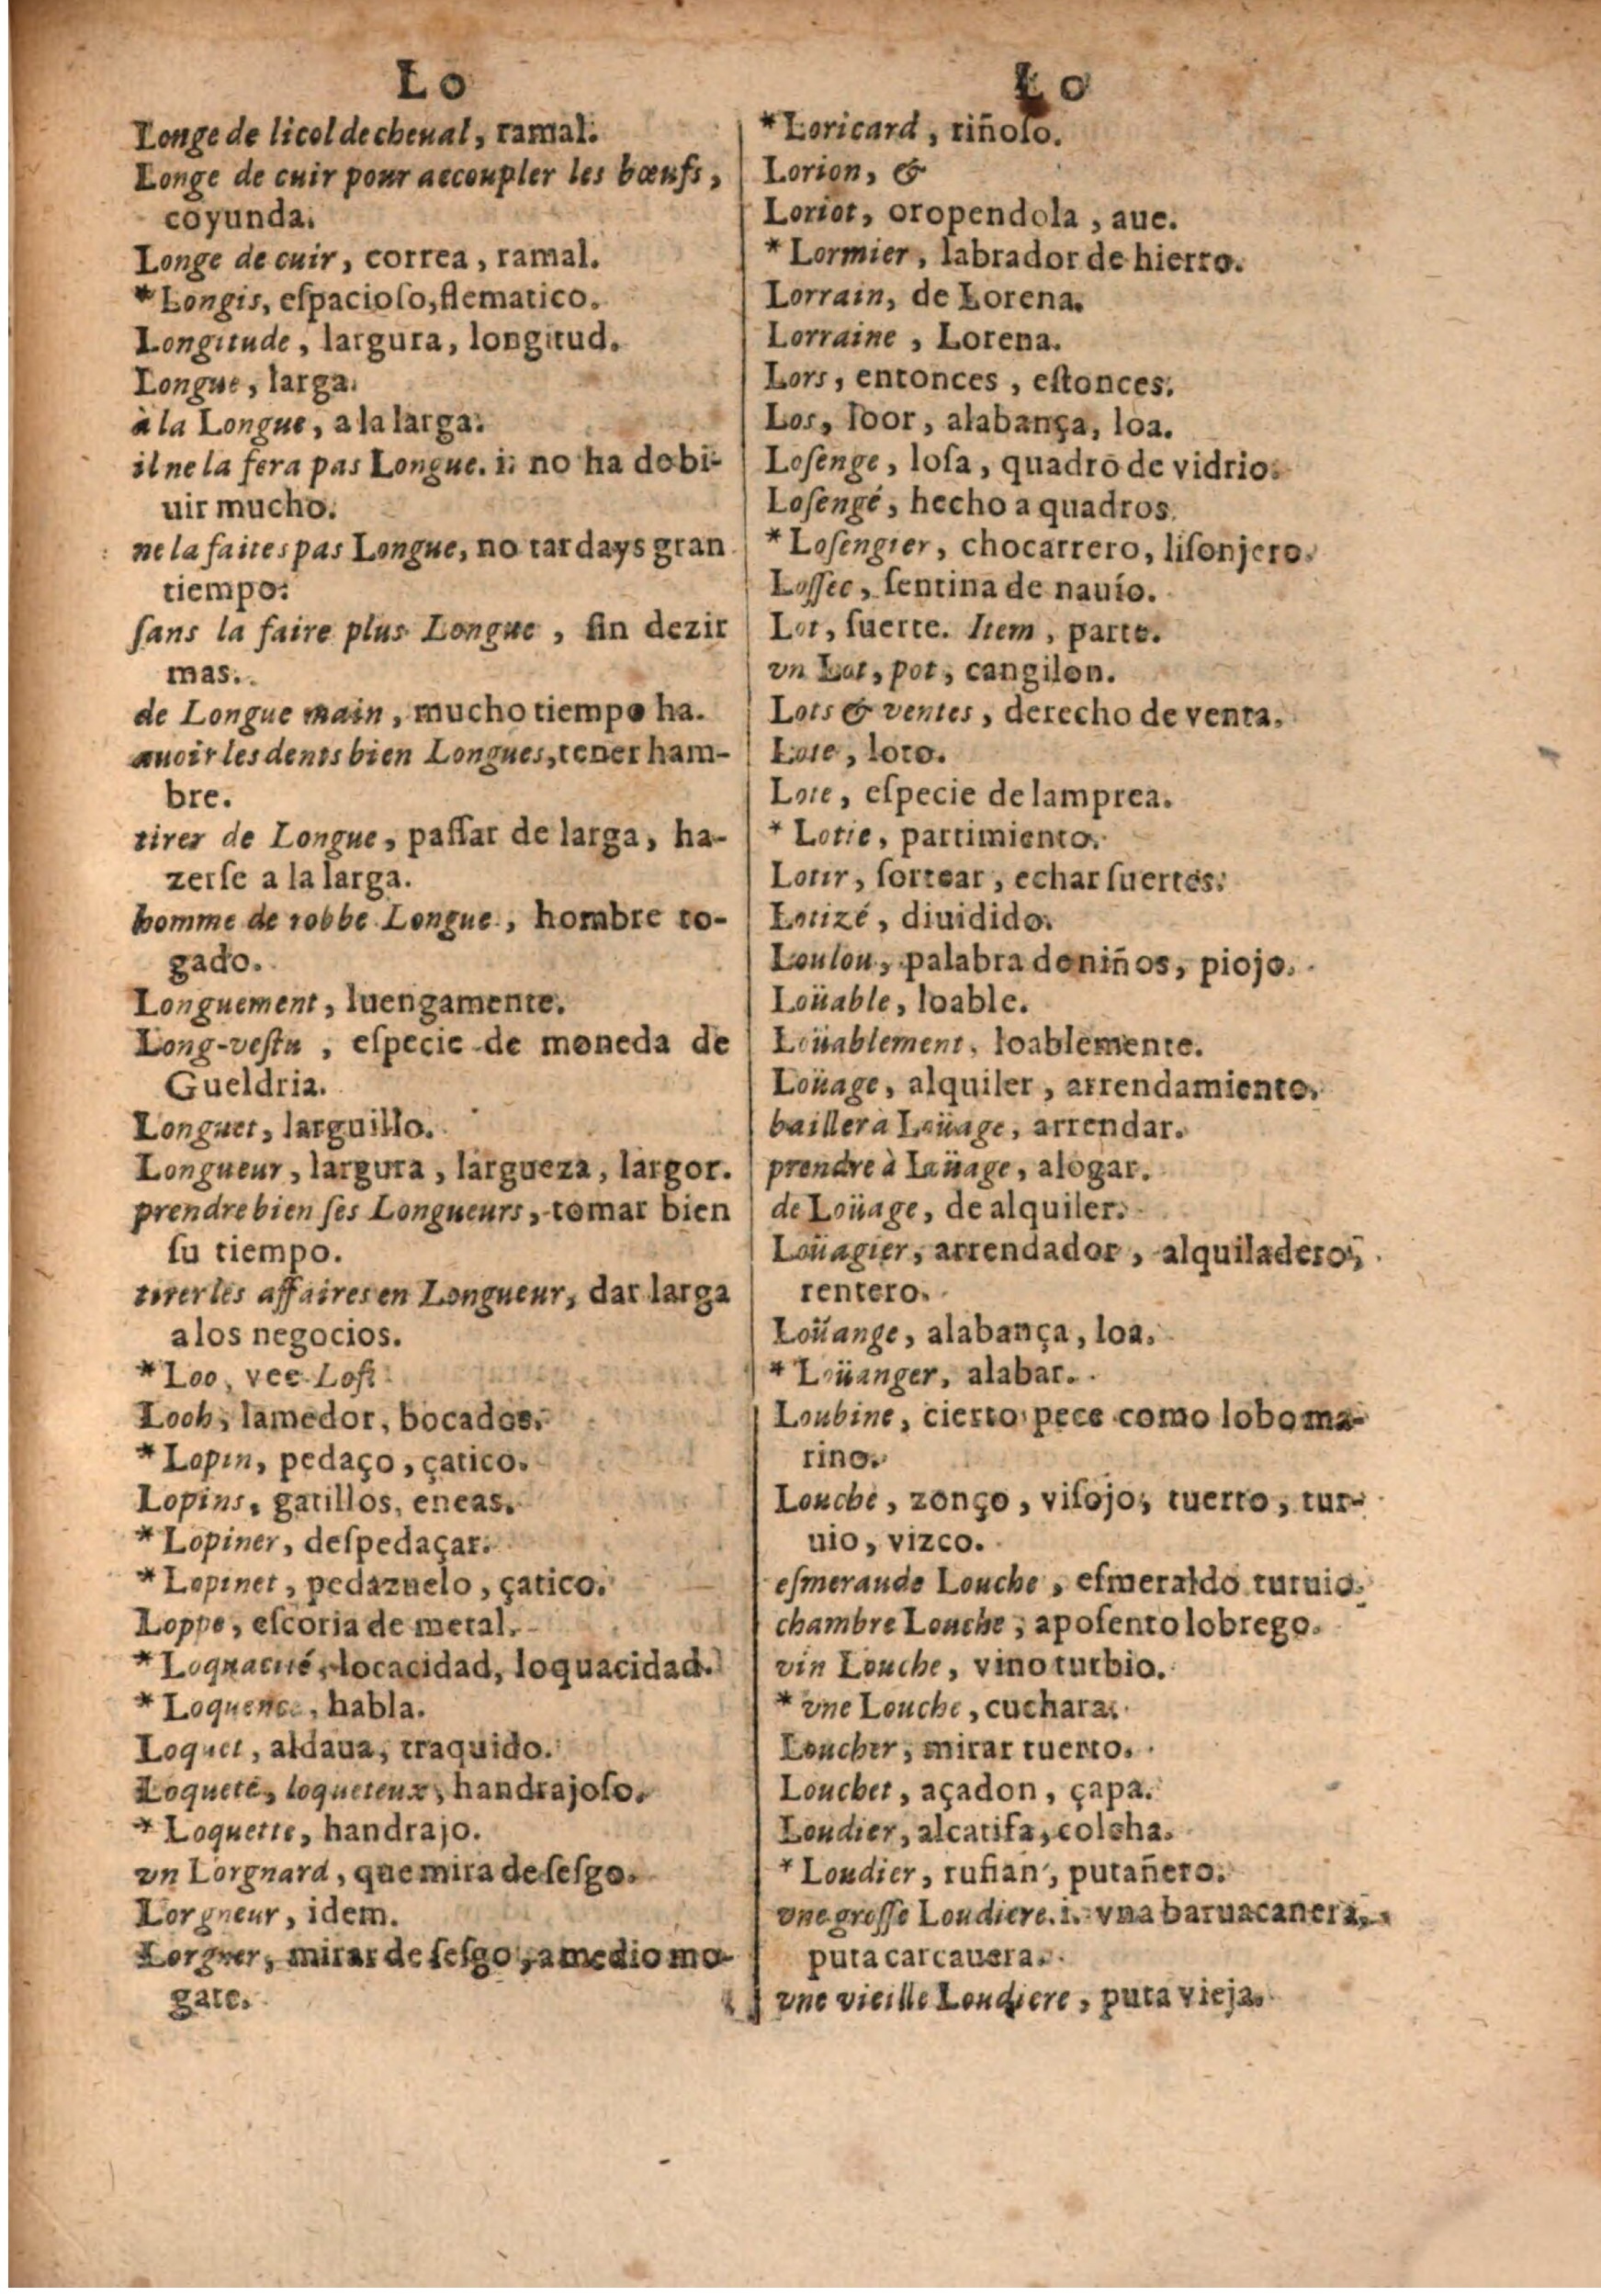 Lo
Longe de licol de cheual, ramal.
Longe de cuir pour accoupler les bœufs,
coyunda.
Longe de cuir, correa, ramal.
*Longis, eſpacioſo, flematico.
Longitude, largura, longitud.
Longue, larga.
à la Longue, a la larga.
il ne la fera pas Longue. i. no ha de bi-
uir mucho.
ne la faites pas Longue, no tardays gran
tiempo.
ſans la faire plus Longue, ſin dezir
mas.
de Longue main, mucho tiempo ha.
auoir les dents bien Longues, tener ham-
bre.
tirer de Longue, paſſar de larga, ha-
zerſe a la larga.
homme de robbe Longue, hombre to-
gado.
Longuement, luengamente.
Long-veſtu, eſpecie de moneda de
Gueldria.
Longuet, larguillo.
Longueur, largura, largueza, largor.
prendre bien ſes Longueurs, tomar bien
ſu tiempo.
tirer les affaires en Longueur, dar larga
a los negocios.
*Loo, vee Loſt
Looh, lamedor, bocados.
*Lopin, pedaço, çatico.
Lopins, gatillos, eneas.
*Lopiner, deſpedaçar.
*Lopinet, pedazuelo, çatico.
Loppe, eſcoria de metal.
*Loquacité, locacidad, loquacidad.
*Loquence, habla.
Loquet, aldaua, traquido.
Loqueté, loqueteux, handrajoſo.
*Loquette, handrajo.
vn Lorgnard, que mira de ſeſgo.
Lorgneur, idem.
Lorgner, mirar de ſeſgo, a medio mo-
gate.
Lo
*Loricard, riñoſo.
Lorion, &
Loriot, oropendola, aue.
*Lormier, labrador de hierro.
Lorrain, de Lorena.
Lorraine, Lorena.
Lors, entonces, eſtonces.
Los, loor, alabança, loa.
Loſenge, loſa, quadro de vidrio.
Loſengé, hecho a quadros.
*Loſengier, chocarrero, liſonjero.
Loſſec, ſentina de nauío.
Lot, ſuerte. Item, parte.
vn Lot, pot, cangilon.
Lots & ventes, derecho de venta.
Lote, loto.
Lote, eſpecie de lamprea.
*Lotie, partimiento.
Lotir, ſortear, echar ſuertes.
Lotizé, diuidido.
Loulou, palabra de niños, piojo.
Loüable, loable.
Loüablement, loablemente.
Loüage, alquiler, arrendamiento.
bailler à Loüage, arrendar.
prendre à Loüage, alogar.
de Loüage, de alquiler.
Loüagier, arrendador, alquiladero,
rentero.
Loüange, alabança, loa.
*Loüanger, alabar.
Loubine, cierto pece como lobo ma-
rino.
Louche, zonço, viſojo, tuerto, tur-
uio, vizco.
eſmeraude Louche, eſmeraldo turuio.
chambre Louche, apoſento lobrego.
vin Louche, vino turbio.
*vne Louche, cuchara.
Loucher, mirar tuerto.
Louchet, açadon, çapa.
Loudier, alcatifa, colcha.
*Loudier, rufian, putañero.
vne groſſe Loudiere. i. vna baruacanera,
puta carcauera.
vne vieille Loudiere, puta vieja.